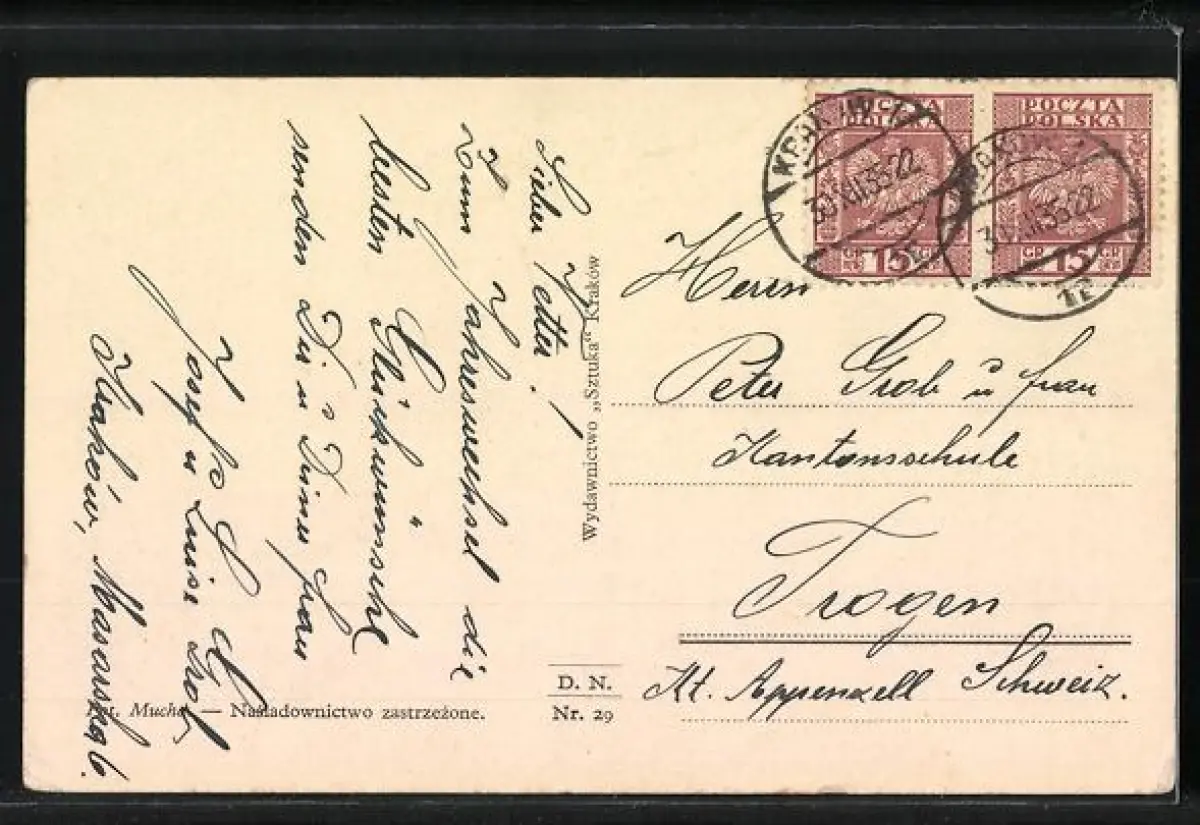 Lieber Vetter!
Zum Jahreswechsel die
besten Glückwünsche
senden Dir u Deiner Frau
Josef u Luise Grob
Kraków,
Wydawnictwo „Sztuka“ Kraków
Mucha. — Naśladownictwo zastrzeżone.
D. N.
Nr. 29
POCZTA
POLSKA
GR 15 GR
POCZTA
POLSKA
GR 15 GR
KRAKÓW
XII.33.22
Herrn
Peter Grob u Frau
Kantonsschule
Trogen
Kt. Appenzell Schweiz.